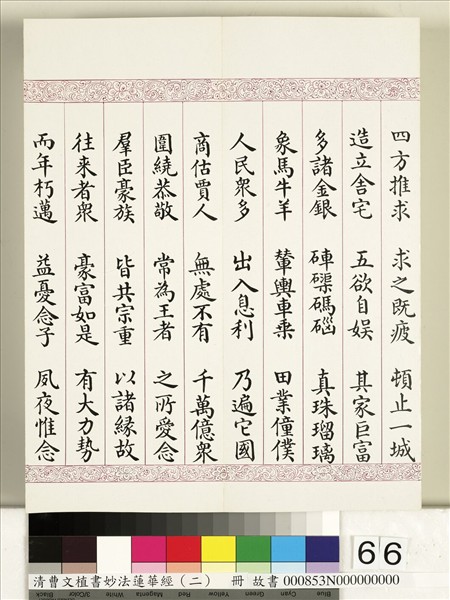 四方推求 求之既疲 頓止一城
造立舍宅 五欲自娛 其家巨富
多諸金銀 硨磲碼碯 真珠瑠璃
象馬牛羊 輦輿車乘 田業僮僕
人民衆多 出入息利 乃遍它國
商估賈人 無處不有 千萬億衆
圍繞恭敬 常為王者 之所愛念
羣臣豪族 皆共宗重 以諸緣故
往来者衆 豪富如是 有大力勢
而年朽邁 益憂念子 夙夜惟念
66
Blue Cyan Green Yellow Red Magenta White 3/Color Black
清曹文植書妙法蓮華經（二） 冊 故書 000853N000000000